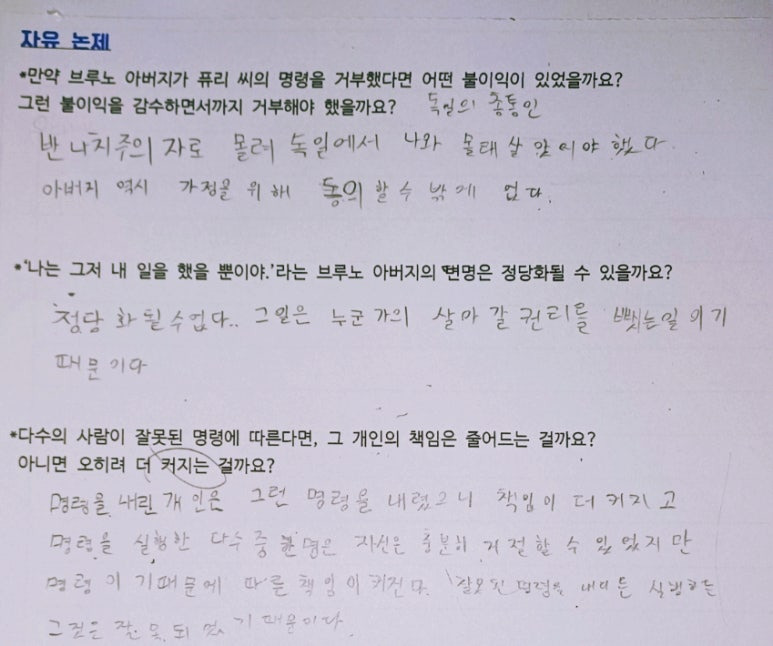 자유 논제
*만약 브루노 아버지가 퓨리 씨의 명령을 거부했다면 어떤 불이익이 있었을까요?
그런 불이익을 감수하면서까지 거부해야 했을까요? 독일의 총통인
반 나치주의 자로 몰려 독일에서 나와 몰태 살 았어야 했다.
아버지 역시 가정을 위해 동의 할 수 밖에 없다.
*'나는 그저 내 일을 했을 뿐이야.'라는 브루노 아버지의 변명은 정당화될 수 있을까요?
정당 화 될 수 없다.. 그일은 누군 가의 살아 갈 권리를 뺏는일 이기
때문 이다
*다수의 사람이 잘못된 명령에 따른다면, 그 개인의 책임은 줄어드는 걸까요?
아니면 오히려 더 커지는 걸까요?
명령을 내린 개 인은 그런 명령을 내렸으니 책임이 더 커지 고
명령을 실행한 다수 중 한 명은 자신은 충분히 거절할 수 있 었지 만
명령 이 기때문에 따른 책임이 커진다. 잘못 된 명령을 내리든 실행하든
그것은 잘 못 되 었 기 때문이다.